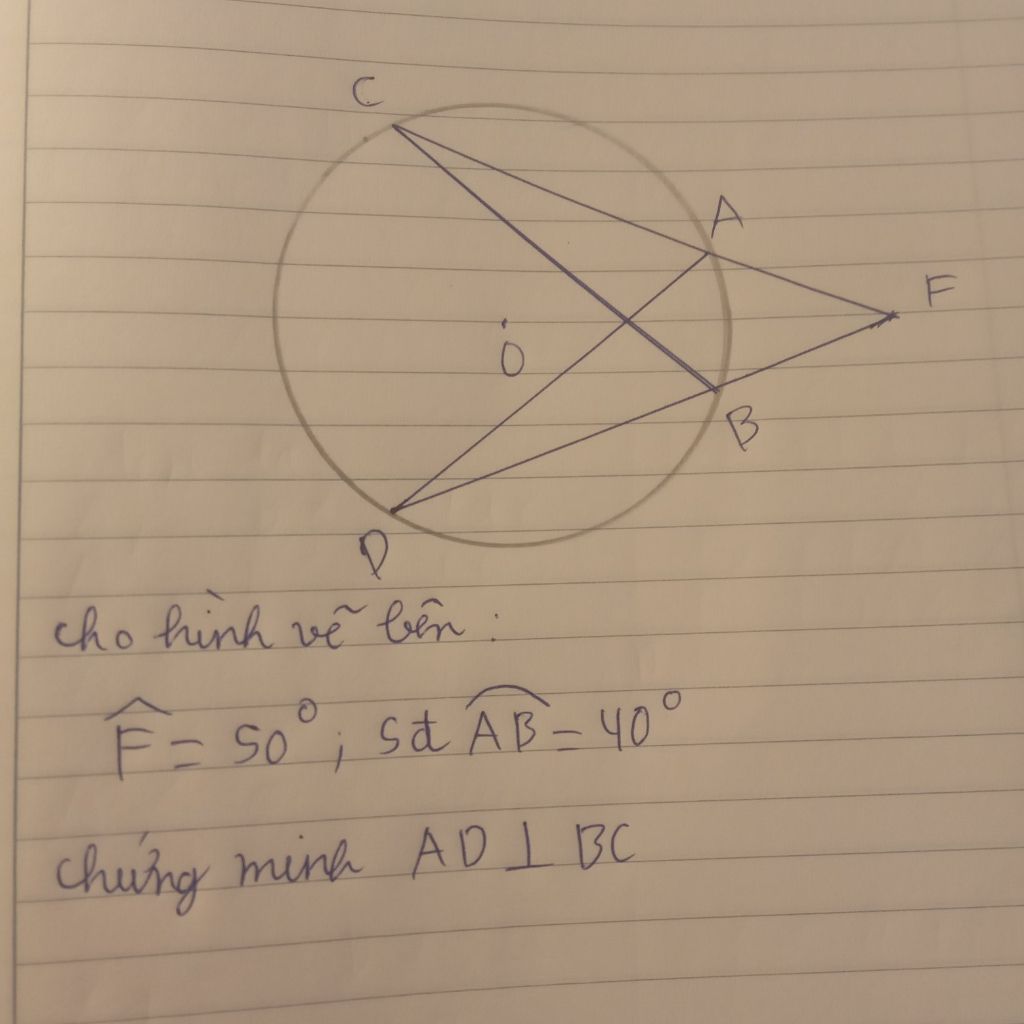 C
A
F
O
B
D
cho hình vẽ bên :
F̂ = 50° ; sđ A͡B = 40°
chứng minh AD ⊥ BC